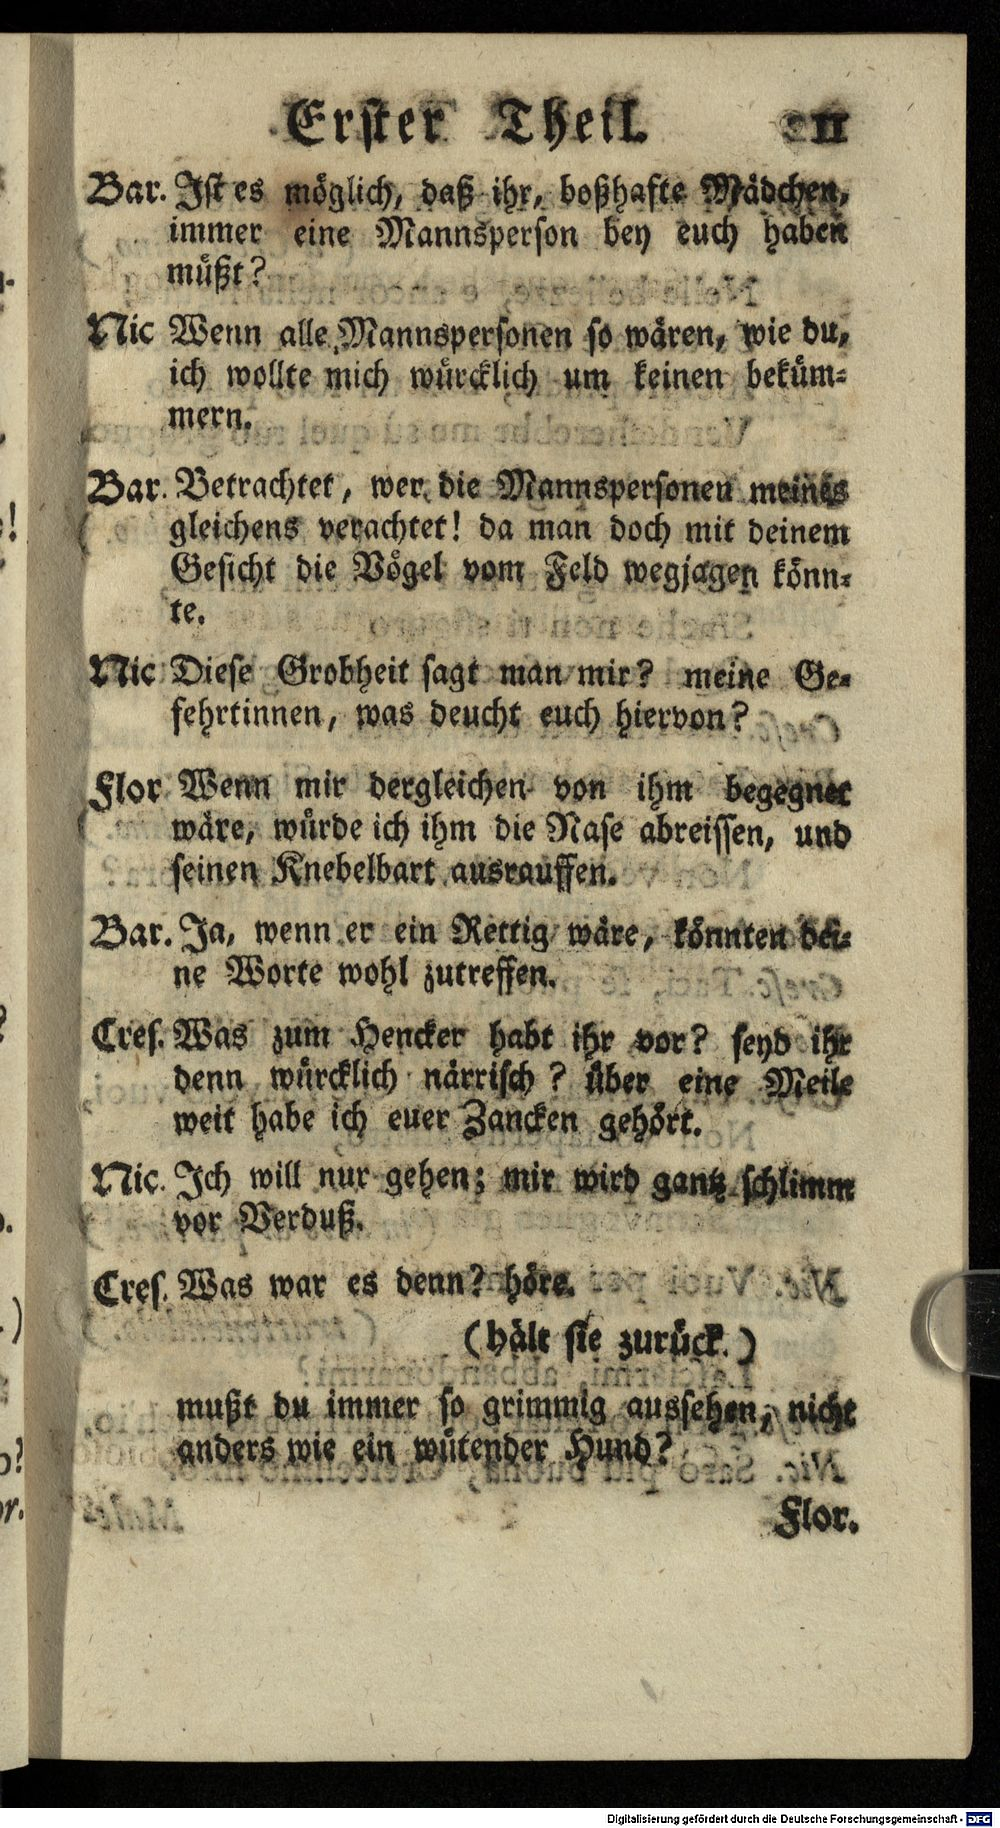 Erster Theil. 11
Bar. Ist es möglich, daß ihr, boßhafte Mädchen,
immer eine Mannsperson bey euch haben
müßt?
Nic Wenn alle Mannspersonen so wären, wie du,
ich wollte mich würcklich um keinen beküm-
mern.
Bar. Betrachtet, wer die Mannspersonen meines
gleichens verachtet! da man doch mit deinem
Gesicht die Vögel vom Feld wegjagen könn-
te.
Nic Diese Grobheit sagt man mir? meine Ge-
fehrtinnen, was deucht euch hiervon?
Flor Wenn mir dergleichen von ihm begegnet
wäre, würde ich ihm die Nase abreissen, und
seinen Knebelbart ausrauffen.
Bar. Ja, wenn er ein Rettig wäre, könnten dei-
ne Worte wohl zutreffen.
Cres. Was zum Hencker habt ihr vor? seyd ihr
denn würcklich närrisch? über eine Meile
weit habe ich euer Zancken gehört.
Nic. Ich will nur gehen; mir wird gantz schlimm
vor Verduß.
Cres. Was war es denn? höre.
(hält sie zurück.)
mußt du immer so grimmig aussehen, nicht
anders wie ein wütender Hund?
Flor.
Digitalisierung gefördert durch die Deutsche Forschungsgemeinschaft - DFG